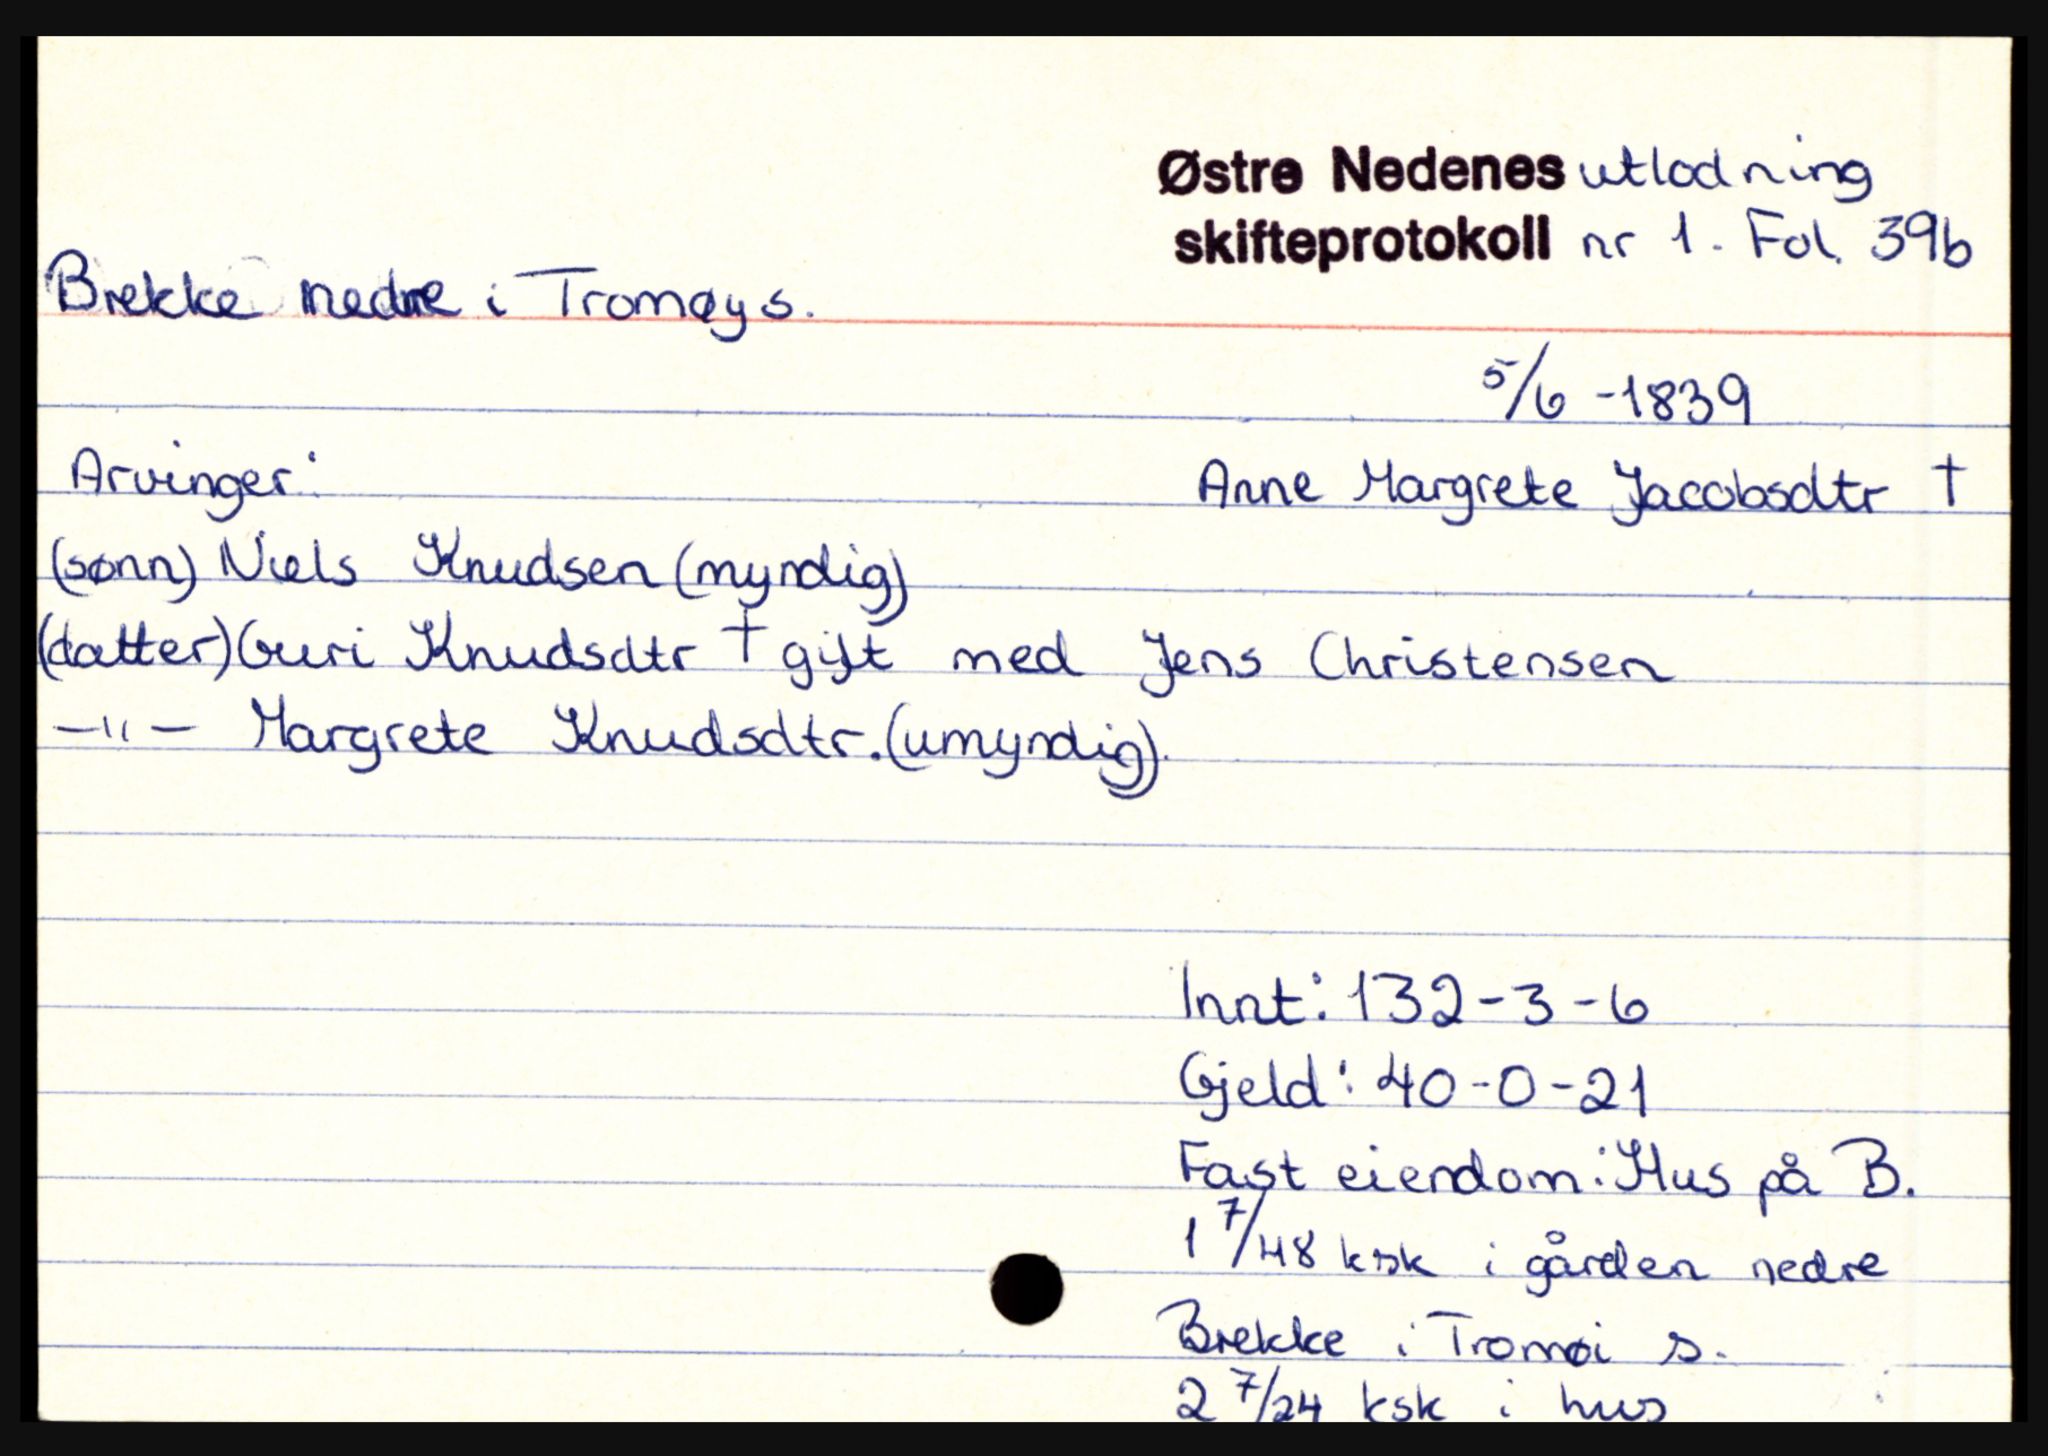 Østre Nedenes utlodning
skifteprotokoll nr 1. Fol. 39b
Brekke nedre i Tromøy s.
5/6 -1839
Arvinger:
Anne Margrete Jacobsdtr †
(sønn) Niels Knudsen (myndig)
(datter) Guri Knudsdtr † gift med Jens Christensen
—"— Margrete Knudsdtr. (umyndig).
Innt: 132-3-6
Gjeld: 40-0-21
Fast eiendom: Hus på B.
1 7/48 ksk i gården nedre
Brekke i Tromøi s.
2 7/24 ksk i hus